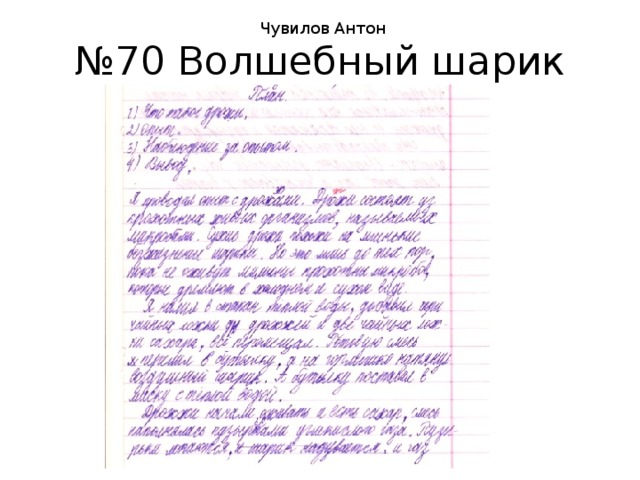 Чувилов Антон
№70 Волшебный шарик
План.
1) Что такое дрожжи.
2) Опыт.
3) Наблюдение за опытом.
4) Вывод.
Я проводил опыт с дрожжами. Дрожжи состоят из
крохотных живых организмов, называемых
микробами. Сухие дрожжи похожи на маленькие
шарики. Но это лишь до тех пор,
пока не оживут крохотных микробов,
которые дремлют в холодном и сухом виде.
Я налил в стакан тёплой воды, добавил три
чайные ложки дрожжей и две чайные лож-
ки сахара, всё перемешал. Готовую смесь
я перелил в бутылку, а на горлышко натянул
воздушный шарик. А бутылку поставил в
миску с тёплой водой.
Дрожжи начали оживать и есть сахар, смесь
наполнялась пузырьками углекислого газа. Пузы-
рьки шарик надувается. и газ